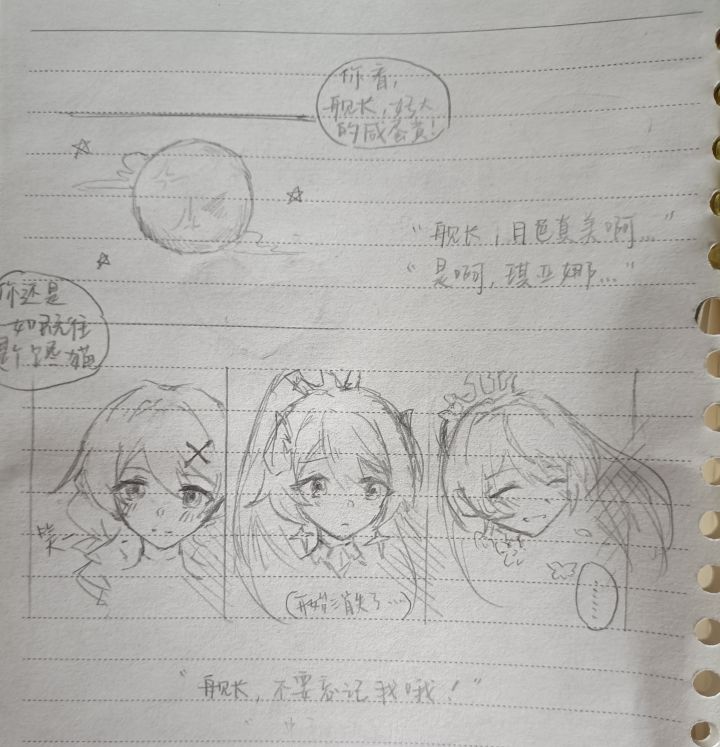 你看，
舰长，好大
的咸蛋黄！
"舰长，月色真美啊..."
"是啊，琪亚娜..."
你还是
一如既往
是个笨猫
笑
(开始消失了...)
......
"舰长，不要忘记我哦！"